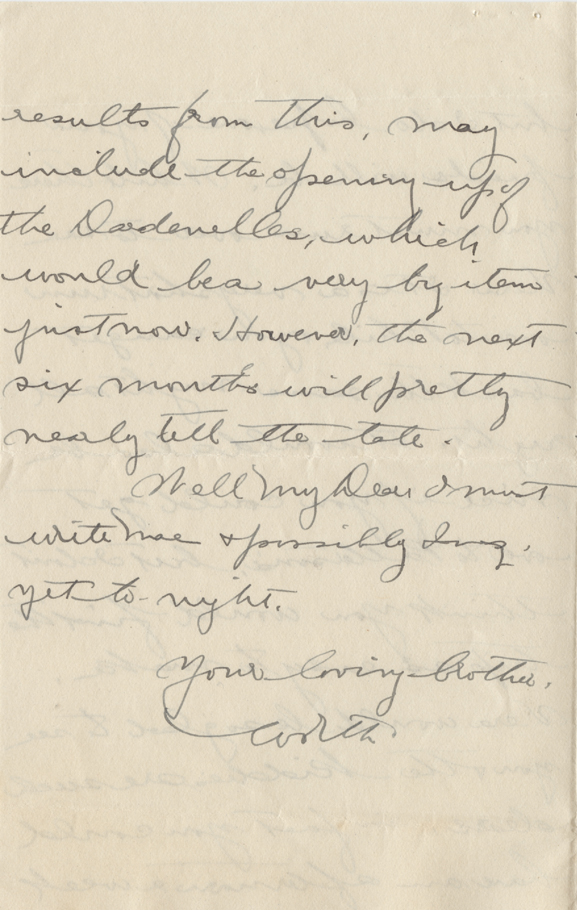 results from this, may
include the opening up of
the Dardenelles, which
would be a very big item
just now. However, the next
six months will pretty
nearly tell the tale.
Well My Dear I must
write Mae & possibly
yet to-night.
Your loving brother,
Worth